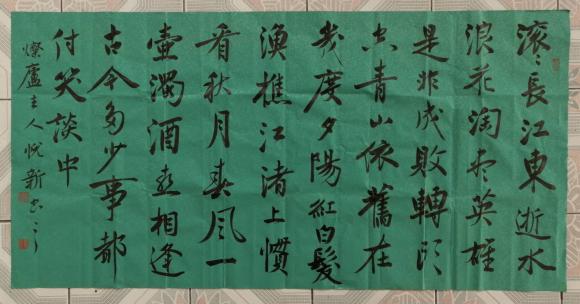 滚〻長江東逝水
浪花淘尽英雄
是非成敗轉头
空青山依舊在
幾度夕陽紅白髮
漁樵江渚上慣
看秋月春风一
壺濁酒喜相逢
古今多少事都
付笑談中
燦廬主人悦新书